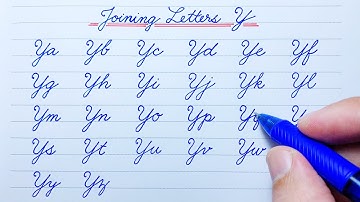 Joining Letters Y
Ya Yb Yc Yd Ye Yf
Yg Yh Yi Yj Yk Yl
Ym Yn Yo Yp
Ys Yt Yu Yv Yw
Yy Yz